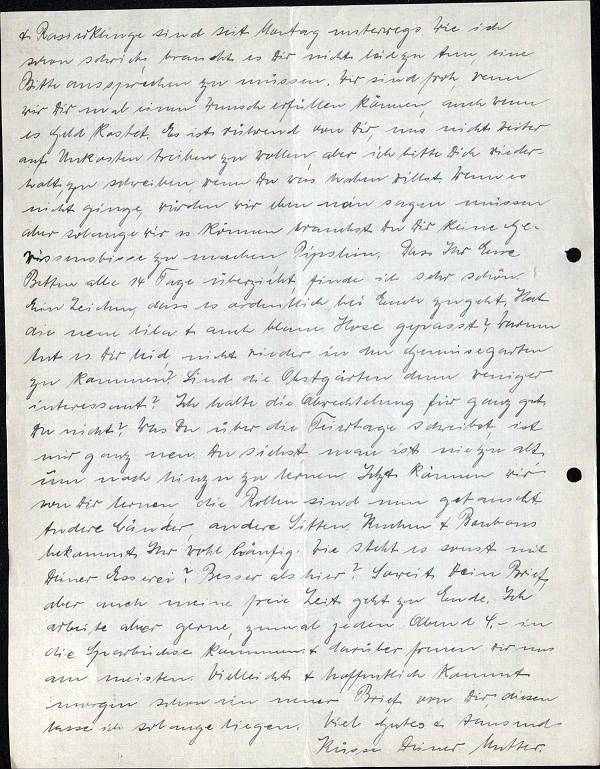 & Rasierklinge sind seit Montag unterwegs. Wie ich
schon schrieb, braucht es Dir nicht leid zu tun, eine
Bitte aussprechen zu müssen. Wir sind froh, wenn
wir Dir mal einen Wunsch erfüllen können, auch wenn
es Geld kostet. Es ist rührend von Dir, uns nicht weiter
auf Unkosten treiben zu wollen aber ich bitte Dich wieder-
holt zu schreiben, wenn Du was haben willst. Wenn es
nicht ginge, würden wir eben nein sagen müssen
aber solange wir es können brauchst Du Dir keine Ge-
wissensbisse zu machen Pipslein. Dass Ihr Eure
Betten alle 14 Tage überzieht, finde ich sehr schön.
Ein Zeichen, dass es ordentlich bei Euch zugeht. Hat
die neue lila & auch blaue Hose gepasst? Warum
tut es Dir leid, nicht wieder in den Gemüsegarten
zu kommen? Sind die Obstgärten denn weniger
interessant? Ich halte die Abwechslung für ganz gut
Du nicht? Was Du über die Feiertage schreibst, ist
mir ganz neu. Du siehst man ist nie zu alt
um noch hinzu zu lernen. Jetzt können wir
von Dir lernen, die Rollen sind nun getauscht
Andere Länder, andere Sitten. Kuchen & Bonbons
bekommt Ihr wohl häufig. Wie steht es sonst mit
Deiner Esserei? Besser als hier? Soweit Dein Brief,
aber auch meine freie Zeit geht zu Ende. Ich
arbeite aber gerne, zumal jeden Abend 4.- in
die Sparbüchse kommen & darüber freuen wir uns
am meisten. Vielleicht & hoffentlich kommt
morgen schon ein neuer Brief von Dir, diesen
lasse ich solange liegen. Viel Gutes & tausend
Küsse Deiner Mutter.